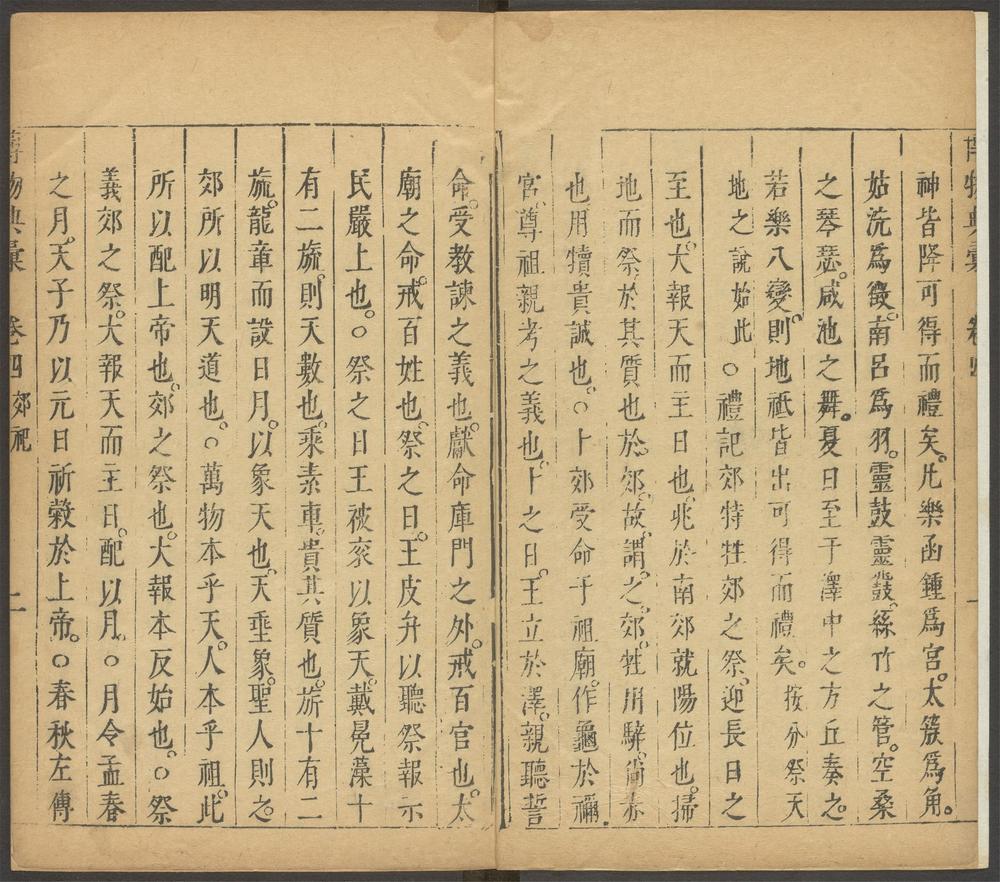 博物典彙 卷四
神皆降可得而禮矣。凡樂函鍾為宮。太簇為角。
姑洗為徵。南呂為羽。靈鼓靈鼗。絲竹之管。空桑
之琴瑟。咸池之舞。夏日至于澤中之方丘奏之。
若樂八變。則地祗皆出可得而禮矣。按分祭天
地之說始此 ○禮記郊特牲郊之祭。迎長日之
至也。大報天而主日也。兆於南郊就陽位也。掃
地而祭。於其質也。於郊。故謂之郊。牲用騂。尚赤
也。用犢貴誠也。○卜郊受命于祖廟。作龜於禰
宮。尊祖親考之義也。卜之日。王立於澤。親聽誓
命。受教諫之義也。獻命庫門之外。戒百官也。太
廟之命。戒百姓也。祭之日。王皮弁以聽祭報示
民嚴上也。○祭之日王被衮以象天。戴冕藻十
有二旒。則天數也。乘素車。貴其質也。旂十有二
旒。龍章而設日月。以象天也。天垂象。聖人則之。
郊所以明天道也。○萬物本乎天。人本乎祖。此
所以配上帝也。郊之祭也。大報本反始也。○祭
義郊之祭。大報天而主日。配以月。○月令孟春
之月。天子乃以元日祈穀於上帝。○春秋左傳
博物典彙 卷四 郊祀 二